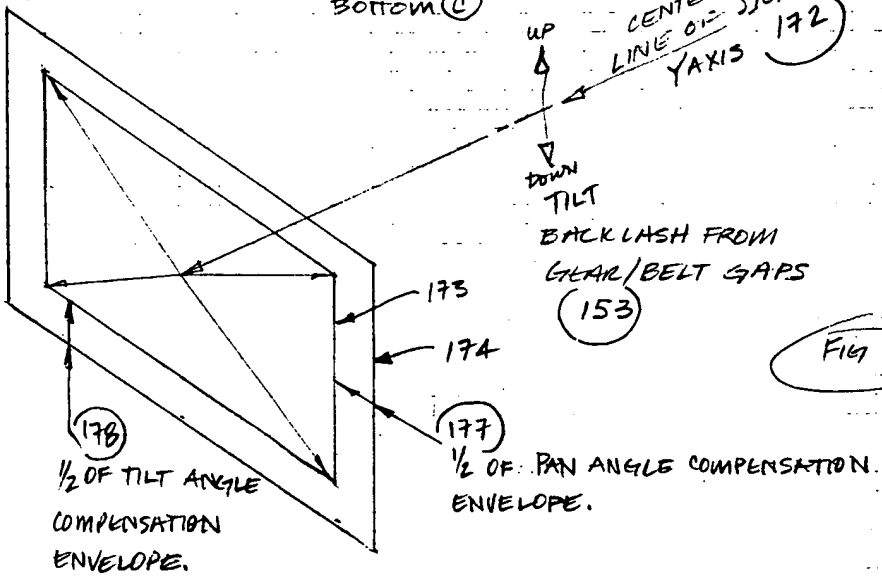 BOTTOM C
UP
LINE OF
Y AXIS 172
DOWN
TILT
BACKLASH FROM
GEAR/BELT GAPS
153
173
174
FIG
178
1/2 OF TILT ANGLE
COMPENSATION
ENVELOPE.
177
1/2 OF PAN ANGLE COMPENSATION
ENVELOPE.